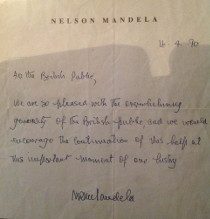 NELSON MANDELA
16.4.90
To the British Public,
We are so pleased with the overwhelming
generosity of the British public, and we would
encourage the continuation of this help at
this important moment of our history
Mandela